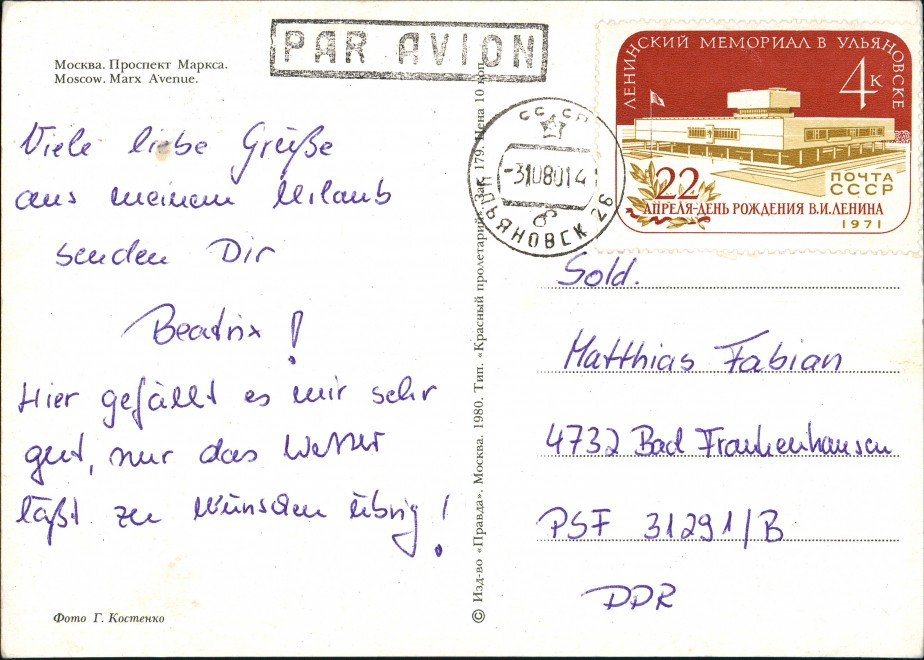 Москва. Проспект Маркса.
Moscow. Marx Avenue.
PAR AVION
Viele liebe Grüße
aus meinem Urlaub
senden Dir
Beatrix !
Hier gefällt es mir sehr
gut, nur das Wetter
läßt zu Wünschen übrig !
Фото Г. Костенко
© Изд-во «Правда», Москва. 1980. Тип. «Красный пролетарий». Зак. 179. Цена 10 коп.
СССР
-31080014
УЛЬЯНОВСК 26
ЛЕНИНСКИЙ МЕМОРИАЛ В УЛЬЯНОВСКЕ
4к
ПОЧТА
СССР
22
АПРЕЛЯ-ДЕНЬ РОЖДЕНИЯ В.И.ЛЕНИНА
1971
Sold.
Matthias Fabian
4732 Bad Frankenhausen
PSF 31291/B
DDR